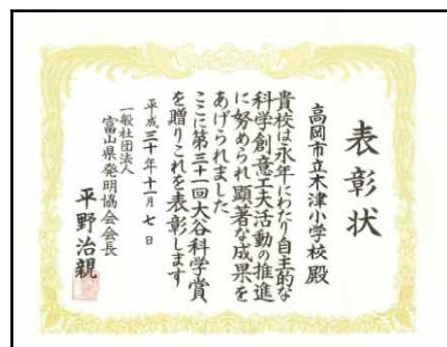 表彰状
高岡市立木津小学校殿
貴校は永年にわたり自主的な
科学創意工夫活動の推進
に努められ顕著な成果を
あげられました
ここに第三十一回大谷科学賞
を贈りこれを表彰します
平成三十年十一月七日
一般社団法人
富山県発明協会会長
平野治親